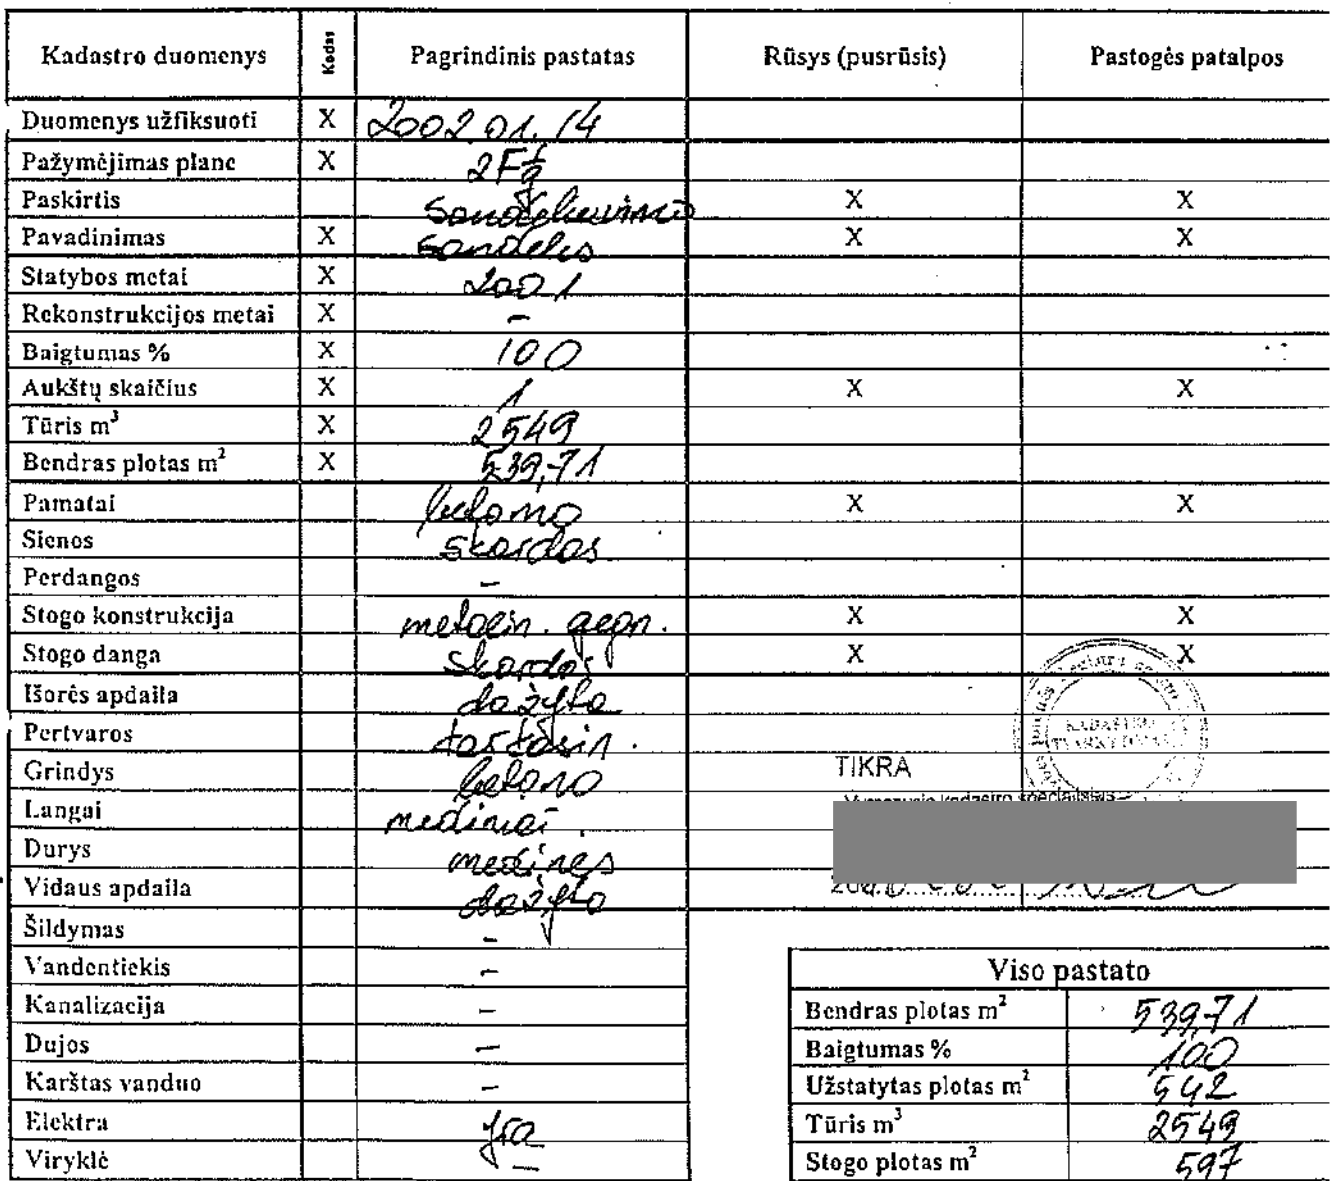 Kadastro duomenys Kodas Pagrindinis pastatas Rūsys (pusrūsis) Pastogės patalpos
Duomenys užfiksuoti X 2002.01.14
Pažymėjimas plane X 2F
Paskirtis sandėliavimo X X
Pavadinimas X sandėlis X X
Statybos metai X 2001
Rekonstrukcijos metai X –
Baigtumas % X 100
Aukštų skaičius X 1 X X
Tūris m³ X 2549
Bendras plotas m² X 539,71
Pamatai betono X X
Sienos skardos
Perdangos –
Stogo konstrukcija metalin. gegn. X X
Stogo danga skardos X X
Išorės apdaila dažyta
Pertvaros
Grindys betono TIKRA
Langai mediniai
Durys medinės
Vidaus apdaila dažyta
Šildymas –
Vandentiekis –
Kanalizacija –
Dujos –
Karštas vanduo –
Elektra yra
Viryklė –
Viso pastato
Bendras plotas m² 539,71
Baigtumas % 100
Užstatytas plotas m² 542
Tūris m³ 2549
Stogo plotas m² 597